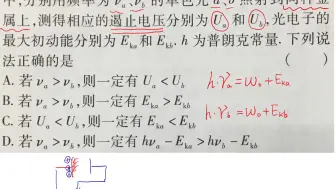 中,分别用频率为νa、νb的单色光a、b照射到同种金
属上,测得相应的遏止电压分别为Ua和Ub,光电子的
最大初动能分别为Eka和Ekb,h为普朗克常量.下列说
法正确的是 ( )
A. 若νa>νb,则一定有Ua<Ub h·νa=W0+Eka
B. 若νa>νb,则一定有Eka>Ekb
C. 若Ua<Ub,则一定有Eka<Ekb h·νb=W0+Ekb
D. 若νa>νb,则一定有hνa-Eka>hνb-Ekb